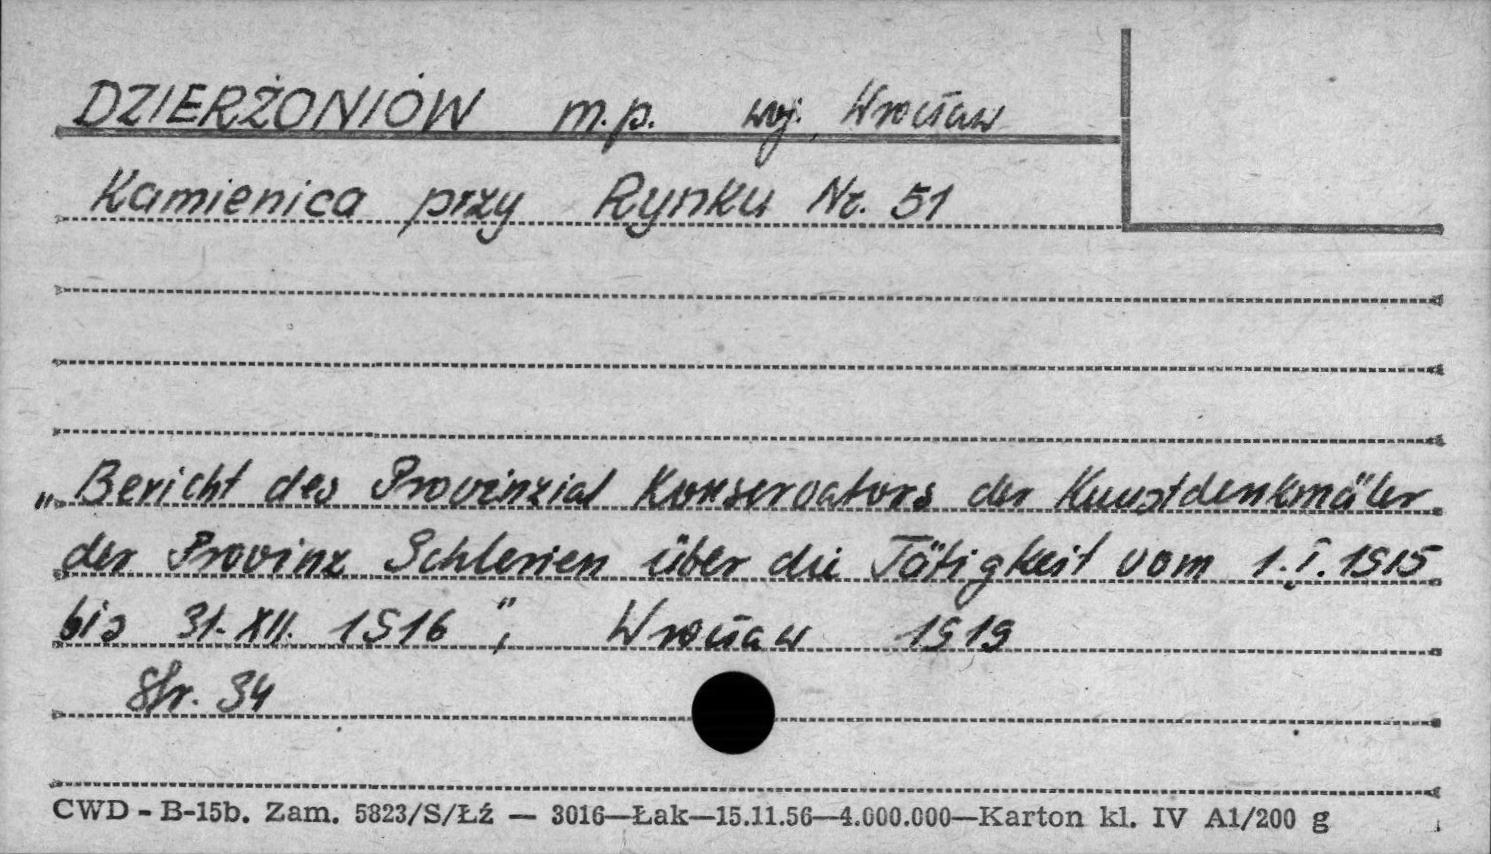 DZIERŻONIÓW m.p. woj. Wrocław
Kamienica przy Rynku Nr. 51
„Bericht des Provinzial Konservators der Kunstdenkmäler
der Provinz Schlesien über die Tätigkeit vom 1.I.1915
bis 31.XII.1916", Wrocław 1919
Str. 34
CWD - B-15b. Zam. 5823/S/Łź — 3016—Łak—15.11.56—4.000.000—Karton kl. IV A1/200 g